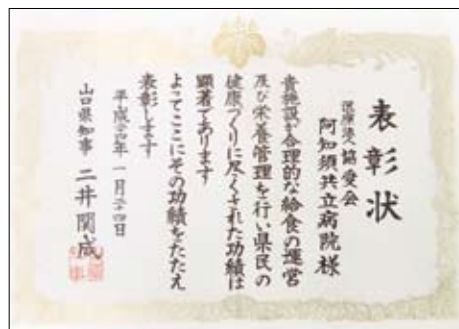 表彰状
医療法人協愛会
阿知須共立病院様
貴施設が合理的な給食の運営
及び栄養管理を行い県民の
健康づくりに尽くされた功績は
顕著であります
よってここにその功績をたたえ
表彰します
平成二十四年一月二十四日
山口県知事 二井関成